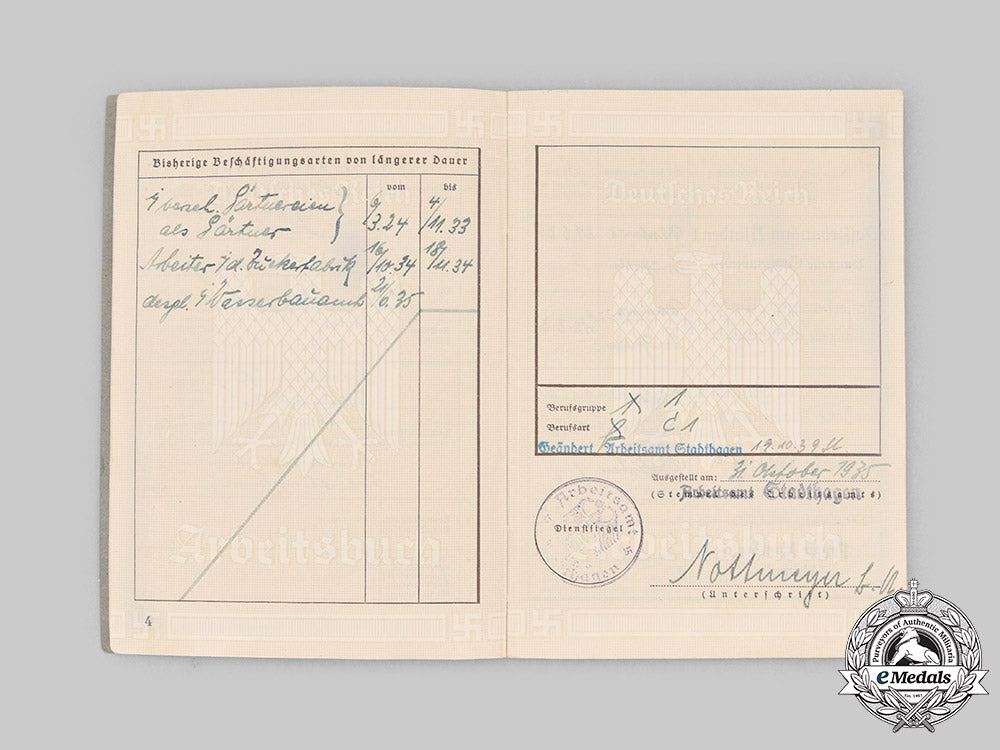 Bisherige Beschäftigungsarten von längerer Dauer
vom bis
i/ versch. Gärtnereien
als Gärtner 3.24 11.33
Arbeiter i/d. Zuckerfabrik 16/10.34 18/11.34
desgl. i/ Wasserbauamt
4
Deutsches Reich
Arbeitsbuch
Berufsgruppe 1
Berufsart C 1
Geändert Arbeitsamt Stadthagen 19.10.39
Ausgestellt am: 31. Oktober 1935
Arbeitsamt Stadthagen
(Stempel des Arbeitsamts)
Arbeitsamt
Dienstsiegel
hagen
Arbeitsbuch
Nottmeyer
(Unterschrift)
Purveyors of Authentic Militaria
eMedals